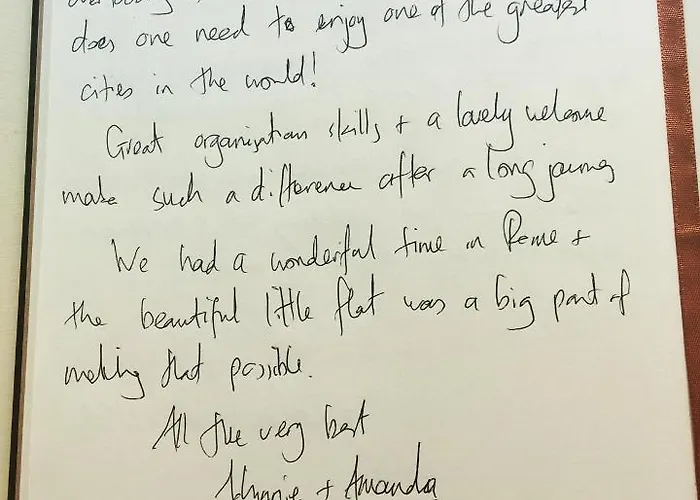 does one need to enjoy one of the greatest
cities in the world!
Great organisation skills + a lovely welcome
make such a difference after a long journey
We had a wonderful time in Rome +
the beautiful little flat was a big part of
making that possible.
All the very best
+ Amanda